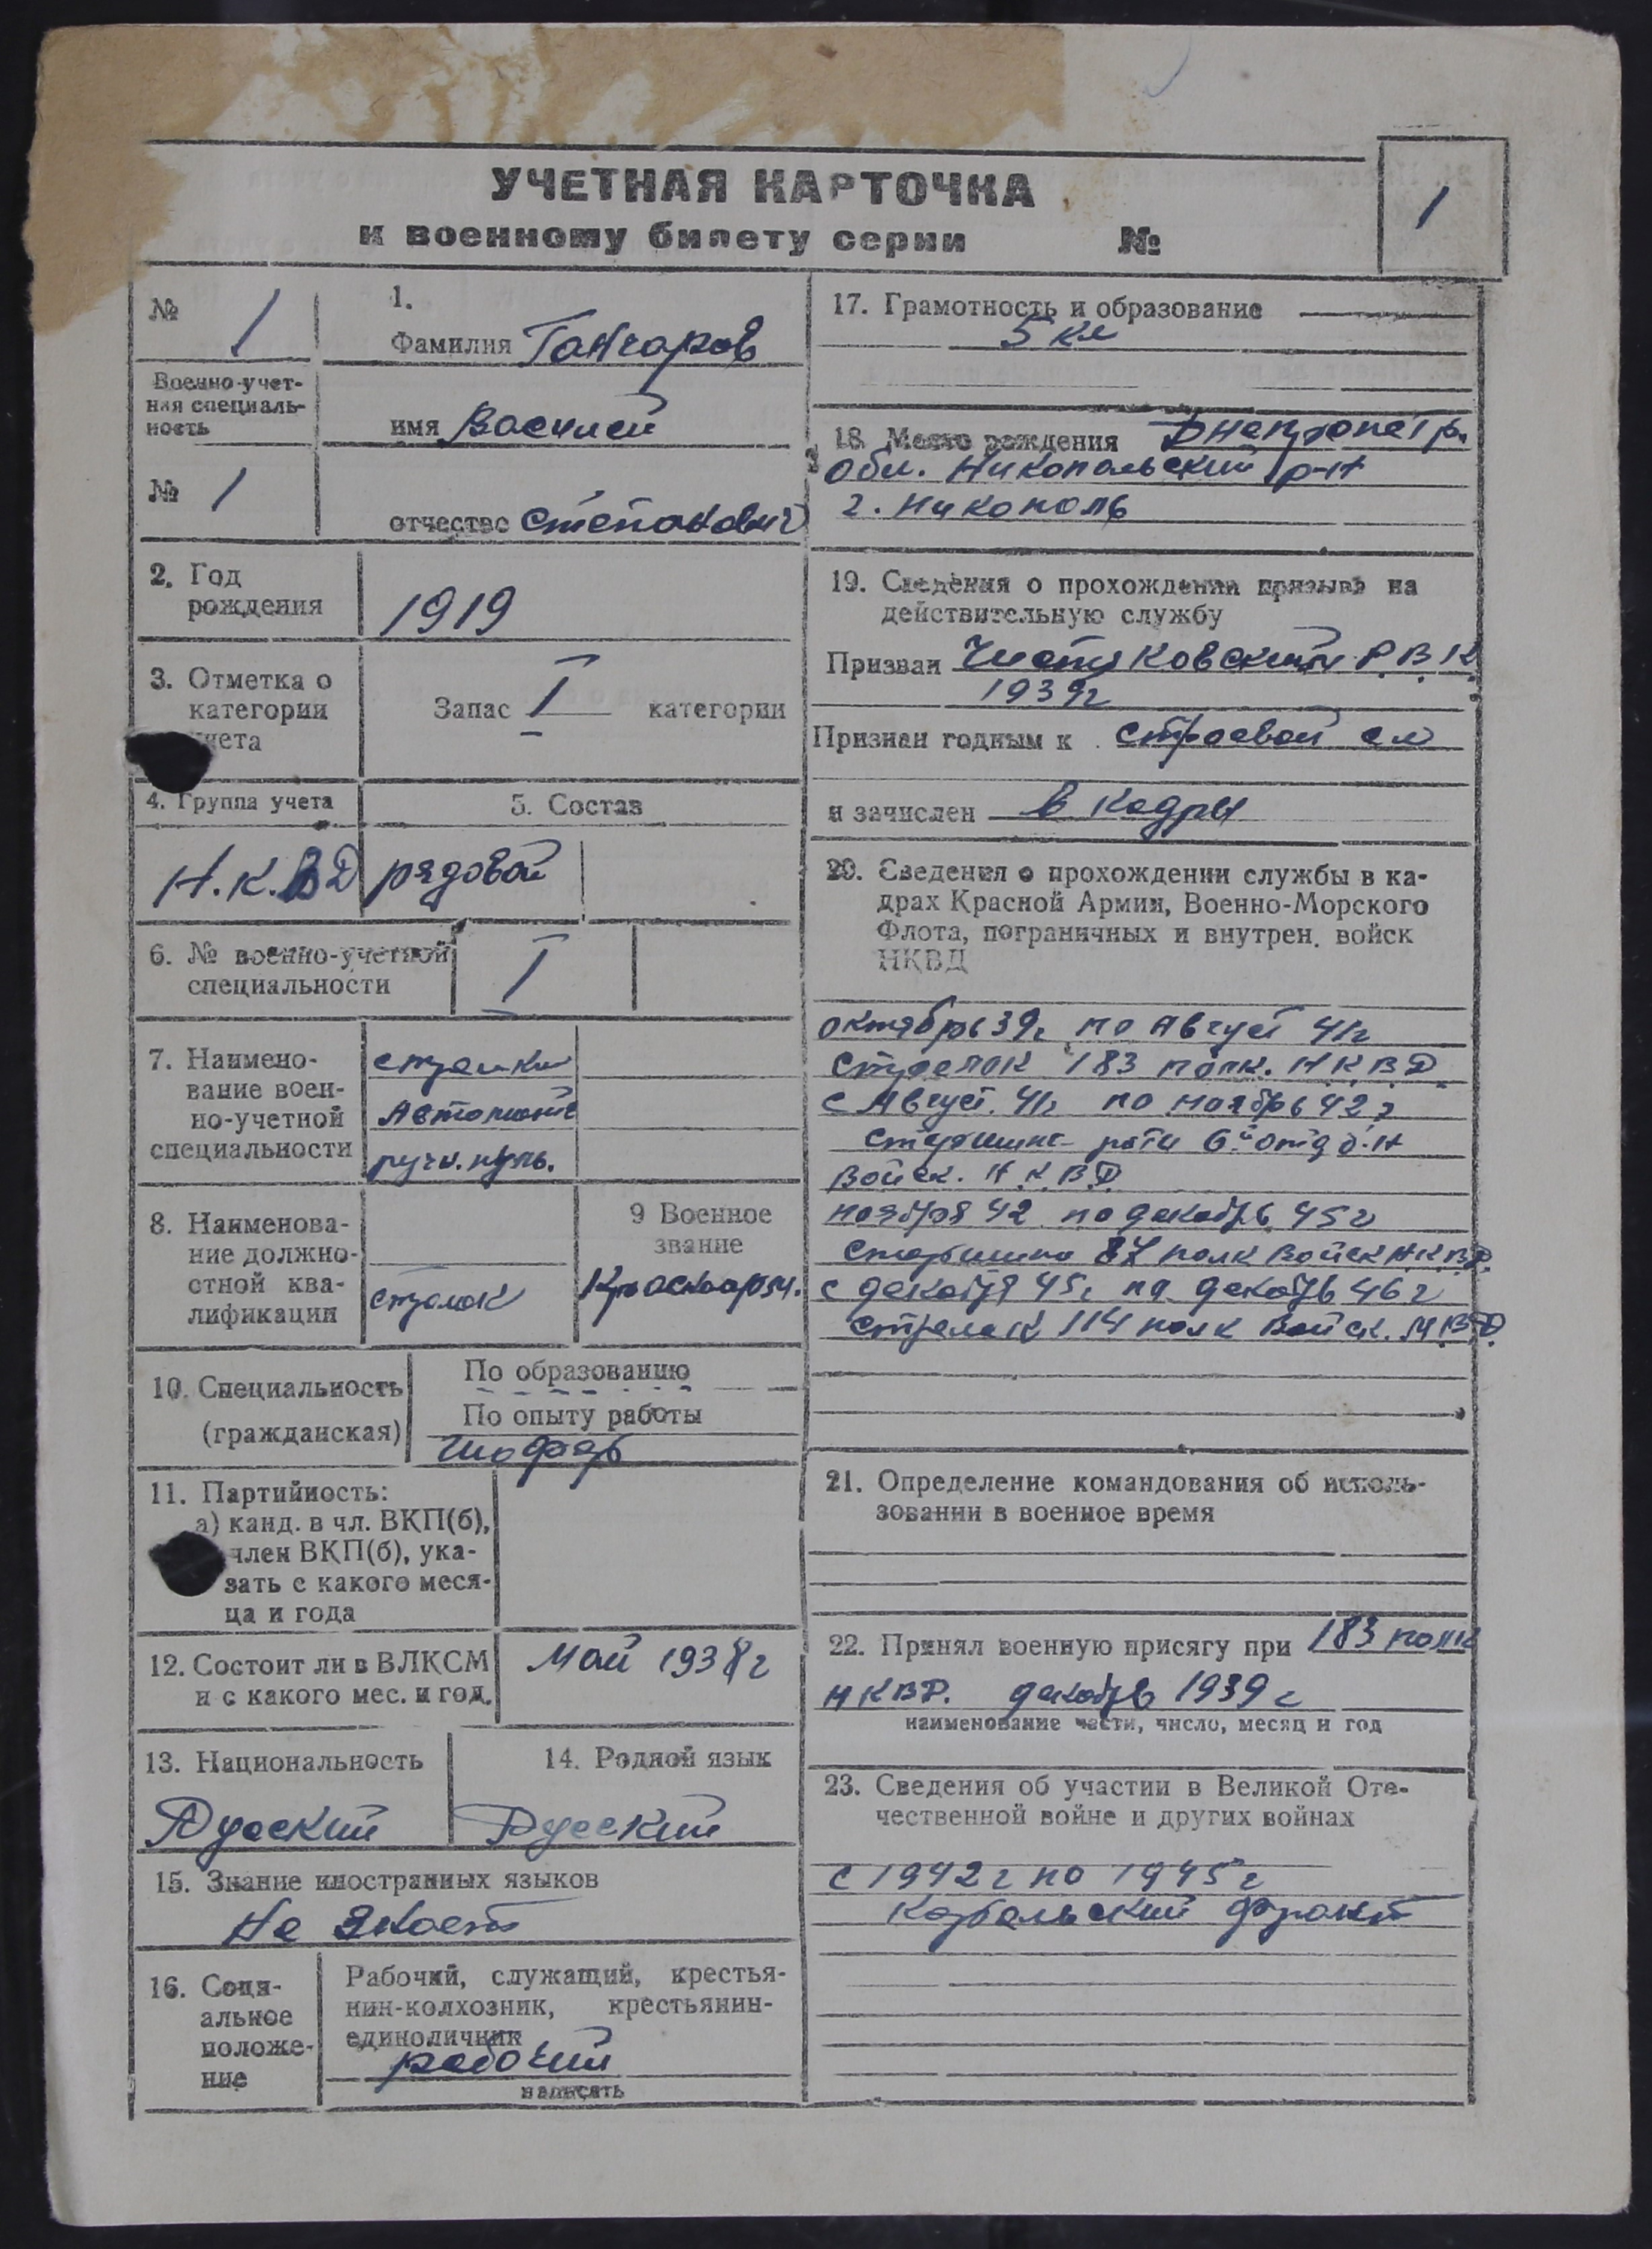 УЧЕТНАЯ КАРТОЧКА
к военному билету серии №
1
№ 1
Военно-учет-
ная специаль-
ность
№ 1
1.
Фамилия Ганчаров
имя Василий
отчество Степанович
2. Год
рождения
1919
3. Отметка о
категории
учета
Запас I категории
4. Группа учета
5. Состав
Н.К.ВД
рядовой
6. № военно-учетной
специальности
I
7. Наимено-
вание воен-
но-учетной
специальности
ручн. пуль.
8. Наименова-
ние должно-
стной ква-
лификации
стрелок
9 Военное
звание
Красноарм.
10. Специальность
(гражданская)
По образованию
По опыту работы
Шофер
11. Партийность:
а) канд. в чл. ВКП(б),
член ВКП(б), ука-
зать с какого меся-
ца и года
12. Состоит ли в ВЛКСМ
и с какого мес. и год.
Май 1938 г
13. Национальность
Русский
14. Родной язык
Русский
15. Знание иностранных языков
Не знает
16. Соци-
альное
положе-
ние
Рабочий, служащий, крестья-
нин-колхозник, крестьянин-
единоличник
рабочий
написать
17. Грамотность и образование
5 кл
18. Место рождения Днепропетр.
обл. Никопольский р-н
г. Никополь
19. Сведения о прохождении призыва на
действительную службу
Призван Чистяковским Р.В.К.
1939г
Признан годным к строевой сл
и зачислен в кадры
20. Сведения о прохождении службы в ка-
драх Красной Армии, Военно-Морского
Флота, пограничных и внутрен. войск
НКВД
октябрь 39г по Август 41г
стрелок 183 полк. Н.К.В.Д.
с Август. 41г по ноябрь 42 г
старшина роты 6й отд б-н
Войск. Н.К.В.Д
ноября 42 по декабрь 45 г
старшина 87 полк Войск Н.К.В.Д.
с декабря 45г по декабрь 46 г
стрелок 114 полк Войск. М.В.Д.
21. Определение командования об исполь-
зовании в военное время
22. Принял военную присягу при 183 полк
НКВД. декабрь 1939 г
наименование части, число, месяц и год
23. Сведения об участии в Великой Оте-
чественной войне и других войнах
с 1942 г по 1945 г
Карельский фронт